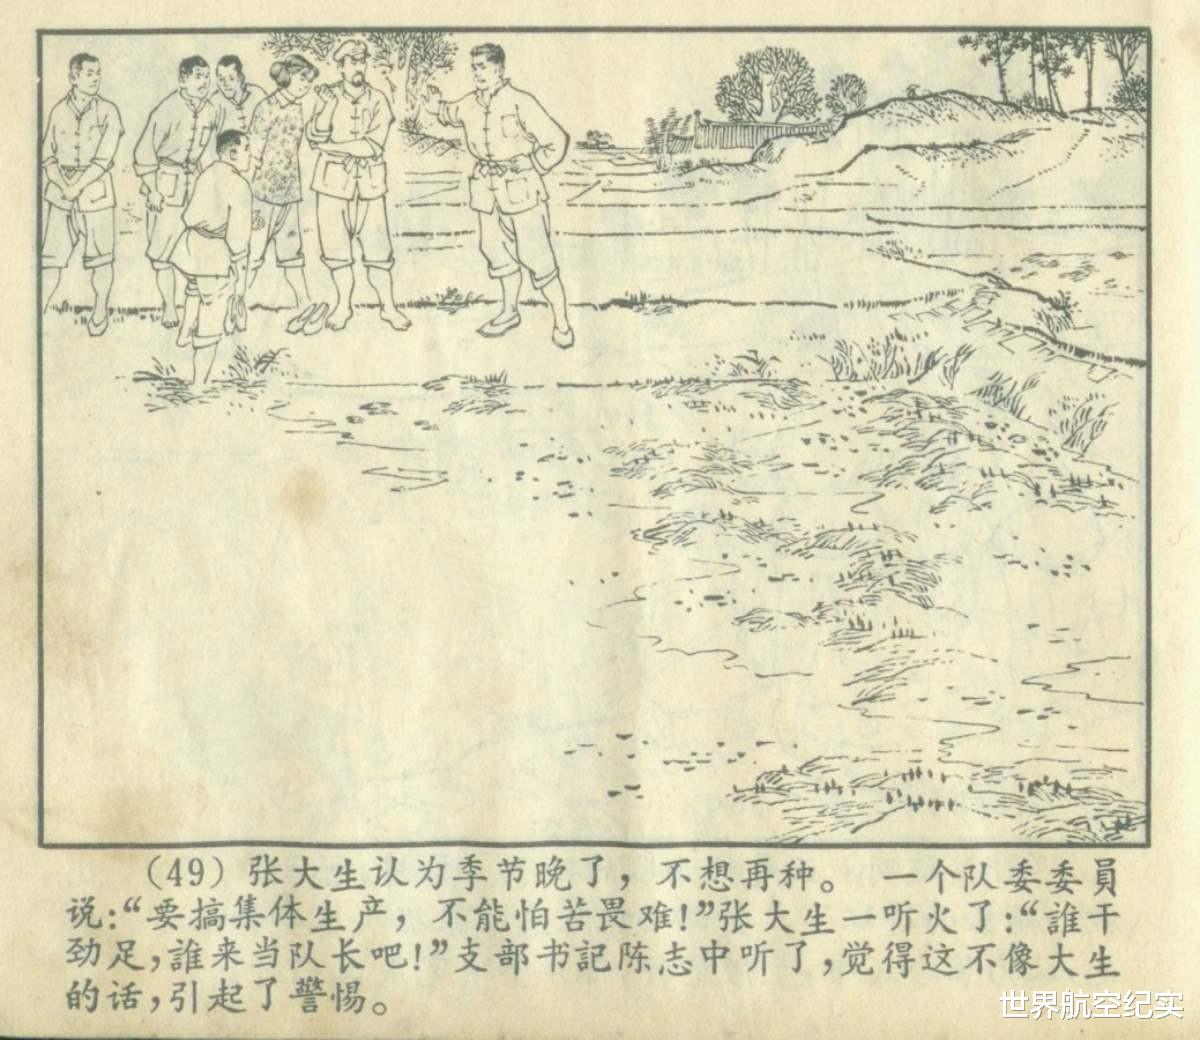 （49）张大生认为季节晚了，不想再种。 一个队委委員
说：“要搞集体生产，不能怕苦畏难！”张大生一听火了：“誰干
劲足，誰来当队长吧！”支部书記陈志中听了，觉得这不像大生
的话，引起了警惕。
世界航空纪实